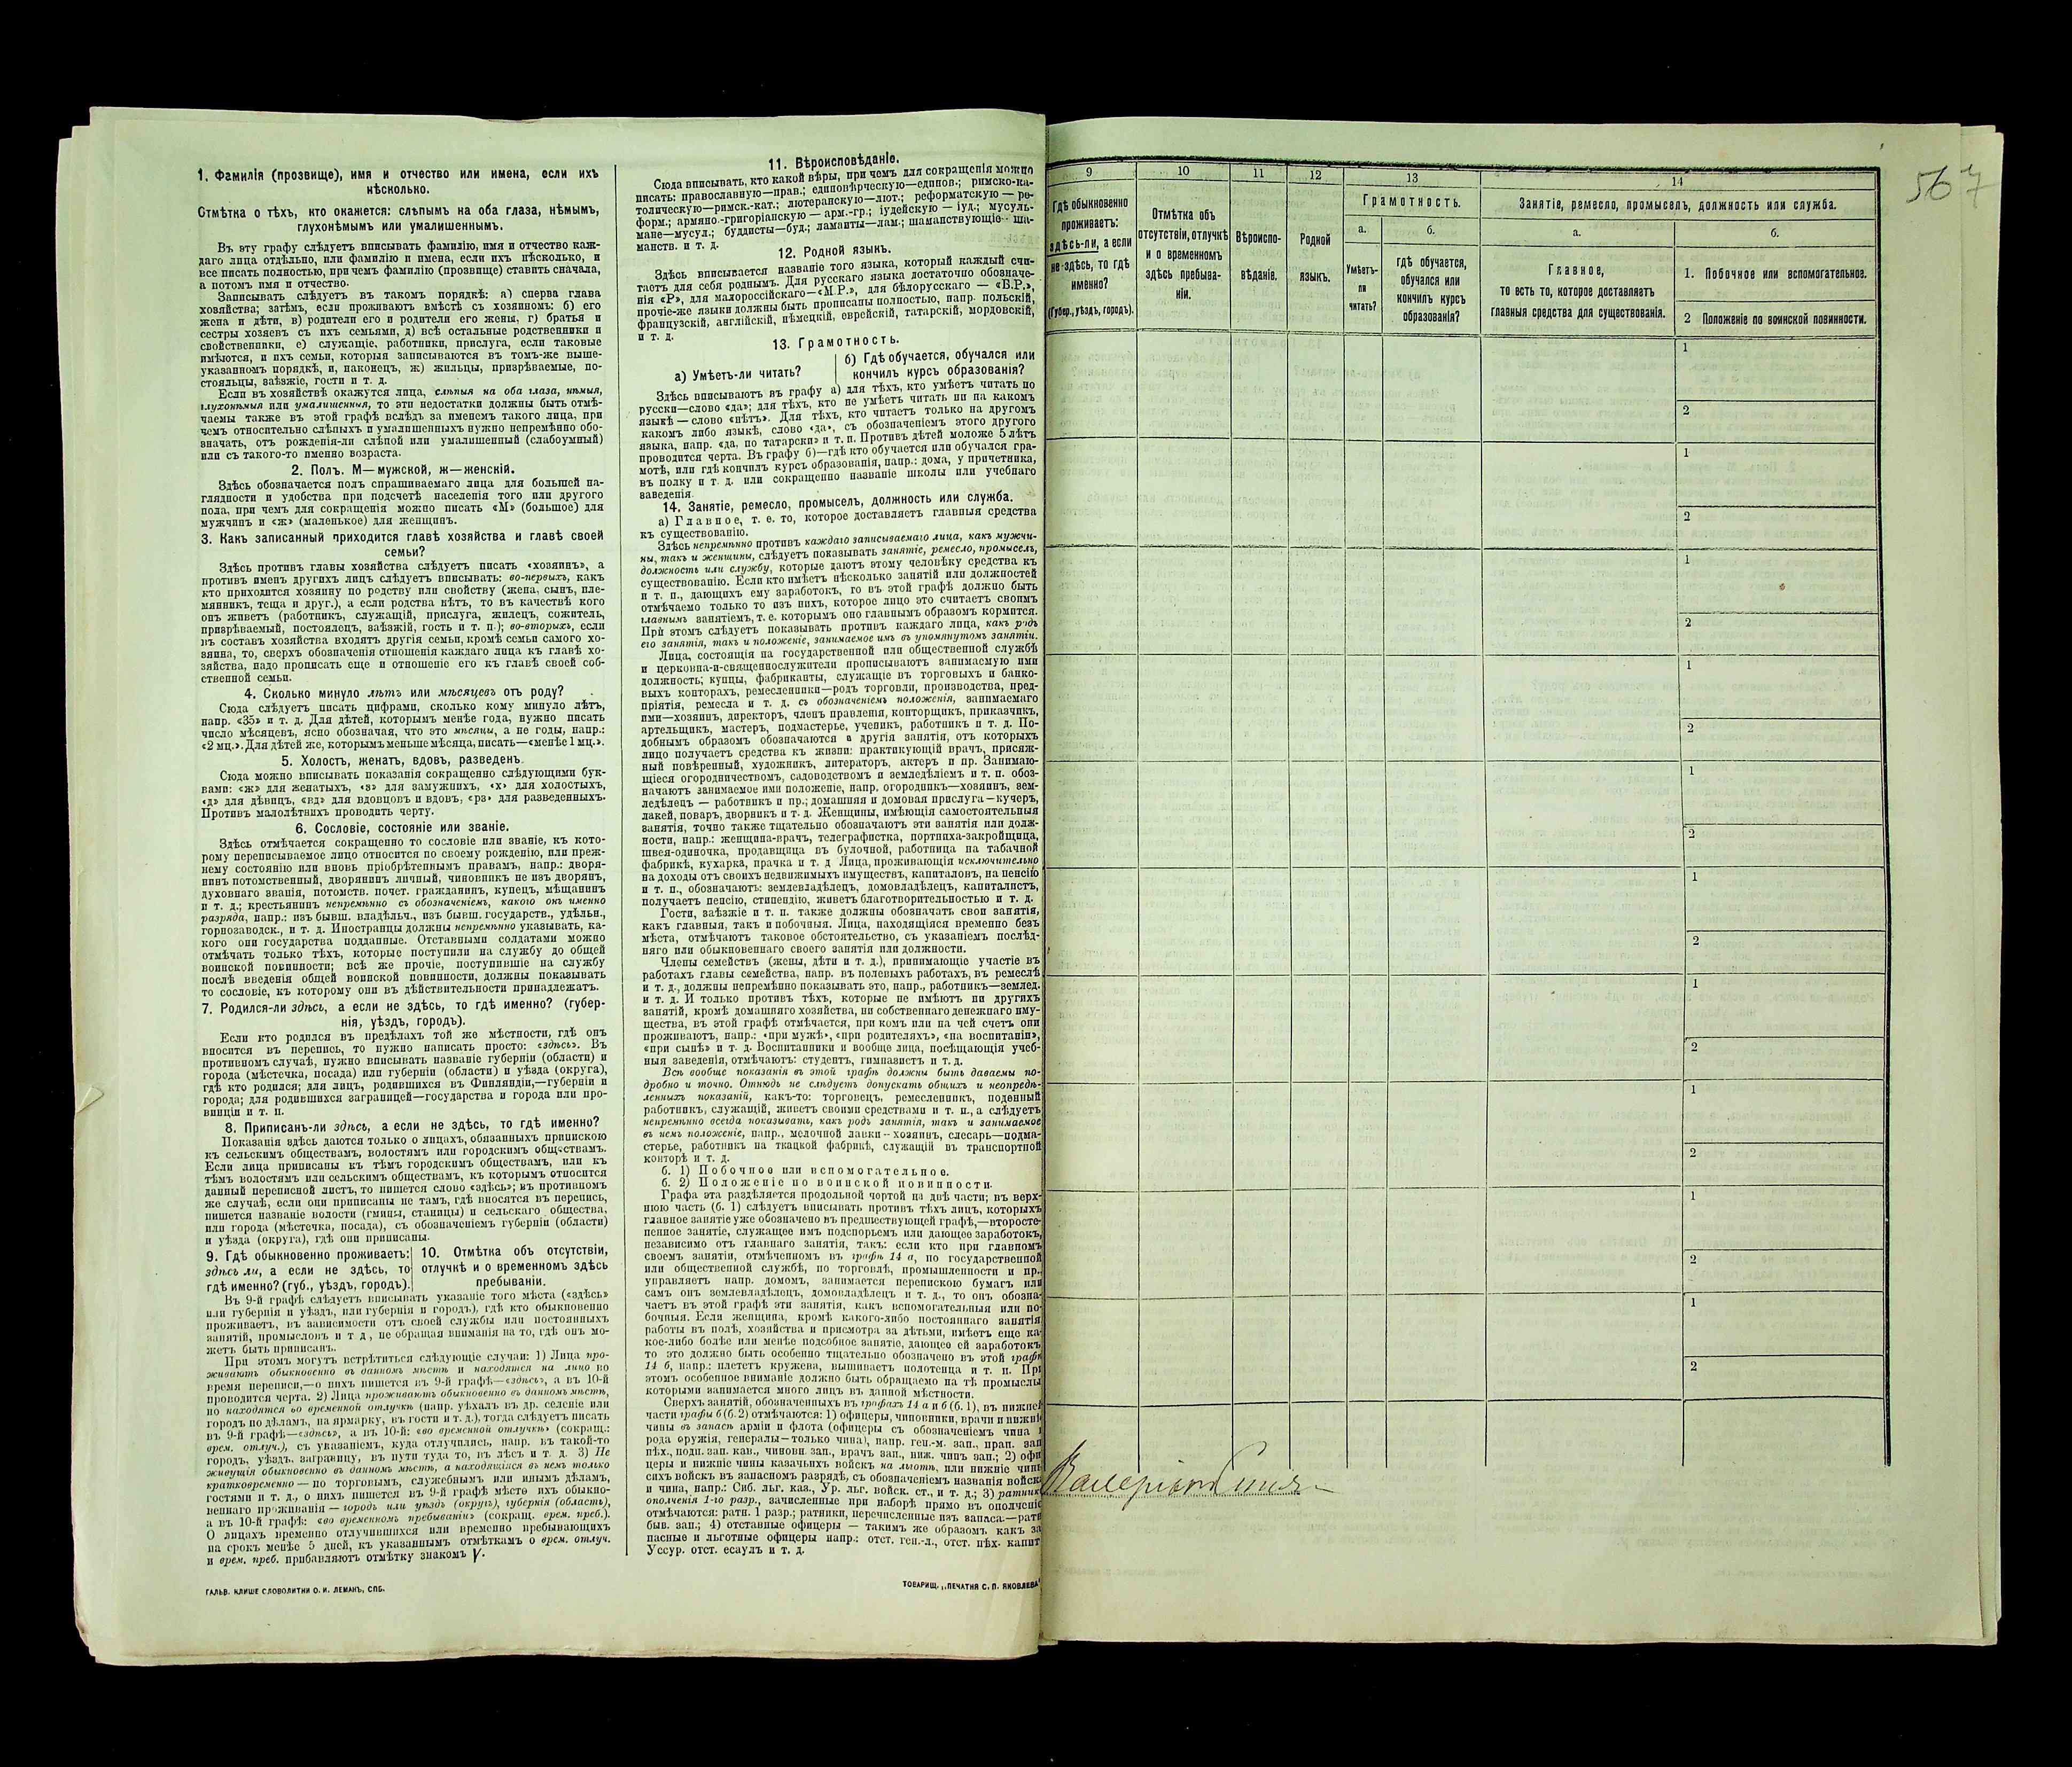 1. Фамилія (прозвище), имя и отчество или имена, если ихъ
нѣсколько.
Отмѣтка о тѣхъ, кто окажется: слѣпымъ на оба глаза, нѣмымъ,
глухонѣмымъ или умалишеннымъ.
Въ эту графу слѣдуетъ вписывать фамилію, имя и отчество каж-
даго лица отдѣльно, или фамилію и имена, если ихъ нѣсколько, и
все писать полностью, при чемъ фамилію (прозвище) ставить сначала,
а потомъ имя и отчество.
Записывать слѣдуетъ въ такомъ порядкѣ: а) сперва глава
хозяйства; затѣмъ, если проживаютъ вмѣстѣ съ хозяиномъ: б) его
жена и дѣти, в) родители его и родители его жены, г) братья и
сестры хозяевъ съ ихъ семьями, д) всѣ остальные родственники и
свойственники, е) служащіе, работники, прислуга, если таковые
имѣются, и ихъ семьи, которыя записываются въ томъ-же выше-
указанномъ порядкѣ, и, наконецъ, ж) жильцы, призрѣваемые, по-
стояльцы, заѣзжіе, гости и т. д.
Если въ хозяйствѣ окажутся лица, слѣпыя на оба глаза, нѣмыя,
глухонѣмыя или умалишенныя, то эти недостатки должны быть отмѣ-
чаемы также въ этой графѣ вслѣдъ за именемъ такого лица, при
чемъ относительно слѣпыхъ и умалишенныхъ нужно непремѣнно обо-
значать, отъ рожденія-ли слѣпой или умалишенный (слабоумный)
или съ такого-то именно возраста.
2. Полъ. М—мужской, ж—женскій.
Здѣсь обозначается полъ спрашиваемаго лица для большей на-
глядности и удобства при подсчетѣ населенія того или другого
пола, при чемъ для сокращенія можно писать «М» (большое) для
мужчинъ и «ж» (маленькое) для женщинъ.
3. Какъ записанный приходится главѣ хозяйства и главѣ своей
семьи?
Здѣсь противъ главы хозяйства слѣдуетъ писать «хозяинъ», а
противъ именъ другихъ лицъ слѣдуетъ вписывать: во-первыхъ, какъ
кто приходится хозяину по родству или свойству (жена, сынъ, пле-
мянникъ, теща и друг.), а если родства нѣтъ, то въ качествѣ кого
онъ живетъ (работникъ, служащій, прислуга, жилецъ, сожитель,
призрѣваемый, постоялецъ, заѣзжій, гость и т. п.); во-вторыхъ, если
въ составъ хозяйства входятъ другія семьи, кромѣ семьи самого хо-
зяина, то, сверхъ обозначенія отношенія каждаго лица къ главѣ хо-
зяйства, надо прописать еще и отношеніе его къ главѣ своей соб-
ственной семьи.
4. Сколько минуло лѣтъ или мѣсяцевъ отъ роду?
Сюда слѣдуетъ писать цифрами, сколько кому минуло лѣтъ,
напр. «35» и т. д. Для дѣтей, которымъ менѣе года, нужно писать
число мѣсяцевъ, ясно обозначая, что это мѣсяцы, а не годы, напр.:
«2 мц.». Для дѣтей же, которымъ меньше мѣсяца, писать—«менѣе 1 мц.».
5. Холостъ, женатъ, вдовъ, разведенъ.
Сюда можно вписывать показанія сокращенно слѣдующими бук-
вами: «ж» для женатыхъ, «з» для замужнихъ, «х» для холостыхъ,
«д» для дѣвицъ, «вд» для вдовцовъ и вдовъ, «рз» для разведенныхъ.
Противъ малолѣтнихъ проводить черту.
6. Сословіе, состояніе или званіе.
Здѣсь отмѣчается сокращенно то сословіе или званіе, къ кото-
рому переписываемое лицо относится по своему рожденію, или преж-
нему состоянію или вновь пріобрѣтеннымъ правамъ, напр.: дворя-
нинъ потомственный, дворянинъ личный, чиновникъ не изъ дворянъ,
духовнаго званія, потомств. почет. гражданинъ, купецъ, мѣщанинъ
и т. д.; крестьянинъ непремѣнно съ обозначеніемъ, какого онъ именно
разряда, напр.: изъ бывш. владѣльч., изъ бывш. государств., удѣльн.,
горнозаводск., и т. д. Иностранцы должны непремѣнно указывать, ка-
кого они государства подданные. Отставными солдатами можно
отмѣчать только тѣхъ, которые поступили на службу до общей
воинской повинности; всѣ же прочіе, поступившіе на службу
послѣ введенія общей воинской повинности, должны показывать
то сословіе, къ которому они въ дѣйствительности принадлежатъ.
7. Родился-ли здѣсь, а если не здѣсь, то гдѣ именно? (губер-
нія, уѣздъ, городъ).
Если кто родился въ предѣлахъ той же мѣстности, гдѣ онъ
вносится въ перепись, то нужно написать просто: «здѣсь». Въ
противномъ случаѣ, нужно вписывать названіе губерніи (области) и
города (мѣстечка, посада) или губерніи (области) и уѣзда (округа),
гдѣ кто родился; для лицъ, родившихся въ Финляндіи,—губерніи и
города; для родившихся заграницей—государства и города или про-
винціи и т. п.
8. Приписанъ-ли здѣсь, а если не здѣсь, то гдѣ именно?
Показанія здѣсь даются только о лицахъ, обязанныхъ припискою
къ сельскимъ обществамъ, волостямъ или городскимъ обществамъ.
Если лица приписаны къ тѣмъ городскимъ обществамъ, или къ
тѣмъ волостямъ или сельскимъ обществамъ, къ которымъ относится
данный переписной листъ, то пишется слово «здѣсь»; въ противномъ
же случаѣ, если они приписаны не тамъ, гдѣ вносятся въ перепись,
пишется названіе волости (гмины, станицы) и сельскаго общества,
или города (мѣстечка, посада), съ обозначеніемъ губерніи (области)
и уѣзда (округа), гдѣ они приписаны.
9. Гдѣ обыкновенно проживаетъ: здѣсь ли, а если не здѣсь, то гдѣ именно? (губ., уѣздъ, городъ).
10. Отмѣтка объ отсутствіи, отлучкѣ и о временномъ здѣсь пребываніи.
Въ 9-й графѣ слѣдуетъ вписывать указаніе того мѣста («здѣсь»
или губернія и уѣздъ, или губернія и городъ), гдѣ кто обыкновенно
проживаетъ, въ зависимости отъ своей службы или постоянныхъ
занятій, промысловъ и т д, не обращая вниманія на то, гдѣ онъ мо-
жетъ быть приписанъ.
При этомъ могутъ встрѣтиться слѣдующіе случаи: 1) Лица про-
живаютъ обыкновенно въ данномъ мѣстѣ и находятся на лицо во
время переписи,—о нихъ пишется въ 9-й графѣ—«здѣсь», а въ 10-й
проводится черта. 2) Лица проживаютъ обыкновенно въ данномъ мѣстѣ,
но находятся во временной отлучкѣ (напр. уѣхалъ въ др. селеніе или
городъ по дѣламъ, на ярмарку, въ гости и т. д.), тогда слѣдуетъ писать
въ 9-й графѣ—«здѣсь», а въ 10-й: «во временной отлучкѣ» (сокращ.:
врем. отлуч.), съ указаніемъ, куда отлучились, напр. въ такой-то
городъ, уѣздъ, заграницу, въ пути туда то, въ лѣсъ и т. д. 3) Не
живущія обыкновенно въ данномъ мѣстѣ, а находящіяся въ немъ только
кратковременно — по торговымъ, служебнымъ или инымъ дѣламъ,
гостями и т. д., о нихъ пишется въ 9-й графѣ мѣсто ихъ обыкно-
веннаго проживанія — городъ или уѣздъ (округъ), губернія (область),
а въ 10-й графѣ: «во временномъ пребываніи» (сокращ. врем. преб.).
О лицахъ временно отлучившихся или временно пребывающихъ
на срокъ менѣе 5 дней, къ указаннымъ отмѣткамъ о врем. отлуч.
и врем. преб. прибавляютъ отмѣтку знакомъ V.
ГАЛЬВ. КЛИШЕ СЛОВОЛИТНИ О. И. ЛЕМАНЪ, СПБ.
11. Вѣроисповѣданіе.
Сюда вписывать, кто какой вѣры, при чемъ для сокращенія можно
писать: православную—прав.; единовѣрческую—единов.; римско-ка-
толическую—римск.-кат.; лютеранскую—лют.; реформатскую — ре-
форм.; армяно-григоріанскую — арм.-гр.; іудейскую — іуд.; мусуль-
мане—мусул.; буддисты—буд.; ламаиты—лам.; шаманствующіе—ша-
манств. и т. д.
12. Родной языкъ.
Здѣсь вписывается названіе того языка, который каждый счи-
таетъ для себя роднымъ. Для русскаго языка достаточно обозначе-
нія «Р», для малороссійскаго—«М.Р.», для бѣлорусскаго — «Б.Р.»,
прочіе-же языки должны быть прописаны полностью, напр. польскій,
французскій, англійскій, нѣмецкій, еврейскій, татарскій, мордовскій,
и т. д.
13. Грамотность.
а) Умѣетъ-ли читать?
б) Гдѣ обучается, обучался или кончилъ курсъ образованія?
Здѣсь вписываютъ въ графу а) для тѣхъ, кто умѣетъ читать по
русски—слово «да»; для тѣхъ, кто не умѣетъ читать ни на какомъ
языкѣ — слово «нѣтъ». Для тѣхъ, кто читаетъ только на другомъ
какомъ либо языкѣ, слово «да», съ обозначеніемъ этого другого
языка, напр. «да, по татарски» и т. п. Противъ дѣтей моложе 5 лѣтъ
проводится черта. Въ графу б)—гдѣ кто обучается или обучался гра-
мотѣ, или гдѣ кончилъ курсъ образованія, напр.: дома, у причетника,
въ полку и т. д. или сокращенно названіе школы или учебнаго
заведенія.
14. Занятіе, ремесло, промыселъ, должность или служба.
а) Главное, т. е. то, которое доставляетъ главныя средства
къ существованію.
Здѣсь непремѣнно противъ каждаго записываемаго лица, какъ мужчи-
ны, такъ и женщины, слѣдуетъ показывать занятіе, ремесло, промыселъ,
должность или службу, которые даютъ этому человѣку средства къ
существованію. Если кто имѣетъ нѣсколько занятій или должностей
и т. п., дающихъ ему заработокъ, то въ этой графѣ должно быть
отмѣчаемо только то изъ нихъ, которое лицо это считаетъ своимъ
главнымъ занятіемъ, т. е. которымъ оно главнымъ образомъ кормится.
При этомъ слѣдуетъ показывать противъ каждаго лица, какъ родъ
его занятія, такъ и положеніе, занимаемое имъ въ упомянутомъ занятіи.
Лица, состоящія на государственной или общественной службѣ
и церковно-и-священнослужители прописываютъ занимаемую ими
должность; купцы, фабриканты, служащіе въ торговыхъ и банко-
выхъ конторахъ, ремесленники—родъ торговли, производства, пред-
пріятія, ремесла и т. д. съ обозначеніемъ положенія, занимаемаго
ими—хозяинъ, директоръ, членъ правленія, конторщикъ, приказчикъ,
артельщикъ, мастеръ, подмастерье, ученикъ, работникъ и т. д. По-
добнымъ образомъ обозначаются и другія занятія, отъ которыхъ
лицо получаетъ средства къ жизни: практикующій врачъ, присяж-
ный повѣренный, художникъ, литераторъ, актеръ и пр. Занимаю-
щіеся огородничествомъ, садоводствомъ и земледѣліемъ и т. п. обоз-
начаютъ занимаемое ими положеніе, напр. огородникъ—хозяинъ, зем-
ледѣлецъ — работникъ и пр.; домашняя и домовая прислуга—кучеръ,
лакей, поваръ, дворникъ и т. д. Женщины, имѣющія самостоятельныя
занятія, точно также тщательно обозначаютъ эти занятія или долж-
ности, напр.: женщина-врачъ, телеграфистка, портниха-закройщица,
швея-одиночка, продавщица въ булочной, работница на табачной
фабрикѣ, кухарка, прачка и т. д Лица, проживающія исключительно
на доходы отъ своихъ недвижимыхъ имуществъ, капиталовъ, на пенсію
и т. п., обозначаютъ: землевладѣлецъ, домовладѣлецъ, капиталистъ,
получаетъ пенсію, стипендію, живетъ благотворительностью и т. д.
Гости, заѣзжіе и т. п. также должны обозначать свои занятія,
какъ главныя, такъ и побочныя. Лица, находящіяся временно безъ
мѣста, отмѣчаютъ таковое обстоятельство, съ указаніемъ послѣд-
няго или обыкновеннаго своего занятія или должности.
Члены семействъ (жены, дѣти и т. д.), принимающіе участіе въ
работахъ главы семейства, напр. въ полевыхъ работахъ, въ ремеслѣ
и т. д., должны непремѣнно показывать это, напр., работникъ—землед.
и т. д. И только противъ тѣхъ, которые не имѣютъ ни другихъ
занятій, кромѣ домашняго хозяйства, ни собственнаго денежнаго иму-
щества, въ этой графѣ отмѣчается, при комъ или на чей счетъ они
проживаютъ, напр.: «при мужѣ», «при родителяхъ», «на воспитаніи»,
«при сынѣ» и т. д. Воспитанники и вообще лица, посѣщающія учеб-
ныя заведенія, отмѣчаютъ: студентъ, гимназистъ и т. д.
Всѣ вообще показанія въ этой графѣ должны быть даваемы по-
дробно и точно. Отнюдь не слѣдуетъ допускать общихъ и неопредѣ-
ленныхъ показаній, какъ-то: торговецъ, ремесленникъ, поденный
работникъ, служащій, живетъ своими средствами и т. п., а слѣдуетъ
непремѣнно всегда показывать, какъ родъ занятія, такъ и занимаемое
въ немъ положеніе, напр., мелочной лавки--хозяинъ, слесарь—подма-
стерье, работникъ на ткацкой фабрикѣ, служащій въ транспортной
конторѣ и т. д.
б. 1) Побочное или вспомогательное.
б. 2) Положеніе по воинской повинности.
Графа эта раздѣляется продольной чертой на двѣ части; въ верх-
нюю часть (б. 1) слѣдуетъ вписывать противъ тѣхъ лицъ, которыхъ
главное занятіе уже обозначено въ предшествующей графѣ,—второсте-
пенное занятіе, служащее имъ подспорьемъ или дающее заработокъ,
независимо отъ главнаго занятія, такъ: если кто при главномъ
своемъ занятіи, отмѣченномъ въ графѣ 14 а, по государственной
или общественной службѣ, по торговлѣ, промышленности и пр.,
управляетъ напр. домомъ, занимается перепискою бумагъ или
самъ онъ землевладѣлецъ, домовладѣлецъ и т. д., то онъ обозна-
чаетъ въ этой графѣ эти занятія, какъ вспомогательныя или по-
бочныя. Если женщина, кромѣ какого-либо постояннаго занятія
работы въ полѣ, хозяйства и присмотра за дѣтьми, имѣетъ еще ка-
кое-либо болѣе или менѣе подсобное занятіе, дающее ей заработокъ
то это должно быть особенно тщательно обозначено въ этой графѣ
14 б, напр.: плететъ кружева, вышиваетъ полотенца и т. п. При
этомъ особенное вниманіе должно быть обращаемо на тѣ промыслы
которыми занимается много лицъ въ данной мѣстности.
Сверхъ занятій, обозначенныхъ въ графахъ 14 а и б (б. 1), въ нижней
части графы б (б. 2) отмѣчаются: 1) офицеры, чиновники, врачи и нижні
чины въ запасѣ арміи и флота (офицеры съ обозначеніемъ чина и
рода оружія, генералы—только чина), напр. ген.-м. зап., прап. зап
пѣх., подп. зап. кав., чиновн. зап., врачъ зап., ниж. чинъ зап.; 2) офи
церы и нижніе чины казачьихъ войскъ на льготѣ, или нижніе чины
сихъ войскъ въ запасномъ разрядѣ, съ обозначеніемъ названія войска
и чина, напр.: Сиб. льг. каз., Ур. льг. войск. ст., и т. д.; 3) ратник
ополченія 1-го разр., зачисленные при наборѣ прямо въ ополченіе
отмѣчаются: ратн. 1 разр.; ратники, перечисленные изъ запаса:—ратн
быв. зап.; 4) отставные офицеры — такимъ же образомъ какъ за
пасные и льготные офицеры напр.: отст. ген.-л., отст. пѣх. капит
Уссур. отст. есаулъ и т. д.
ТОВАРИЩ. „ПЕЧАТНЯ С. П. ЯКОВЛЕВА“
567
9
Гдѣ обыкновенно
проживаетъ:
здѣсь-ли, а если
не здѣсь, то гдѣ
именно?
(Губер., уѣздъ, городъ).
10
Отмѣтка объ
отсутствіи, отлучкѣ
и о временномъ
здѣсь пребыва-
ніи.
11
Вѣроиспо-
вѣданіе.
12
Родной
языкъ.
13
Грамотность.
а.
Умѣетъ-
ли
читать?
б.
гдѣ обучается,
обучался или
кончилъ курсъ
образованія?
14
Занятіе, ремесло, промыселъ, должность или служба.
а.
Главное,
то есть то, которое доставляетъ
главныя средства для существованія.
б.
1. Побочное или вспомогательное.
2 Положеніе по воинской повинности.
1
2
1
2
1
2
1
2
1
2
1
2
1
2
1
2
1
2
1
2